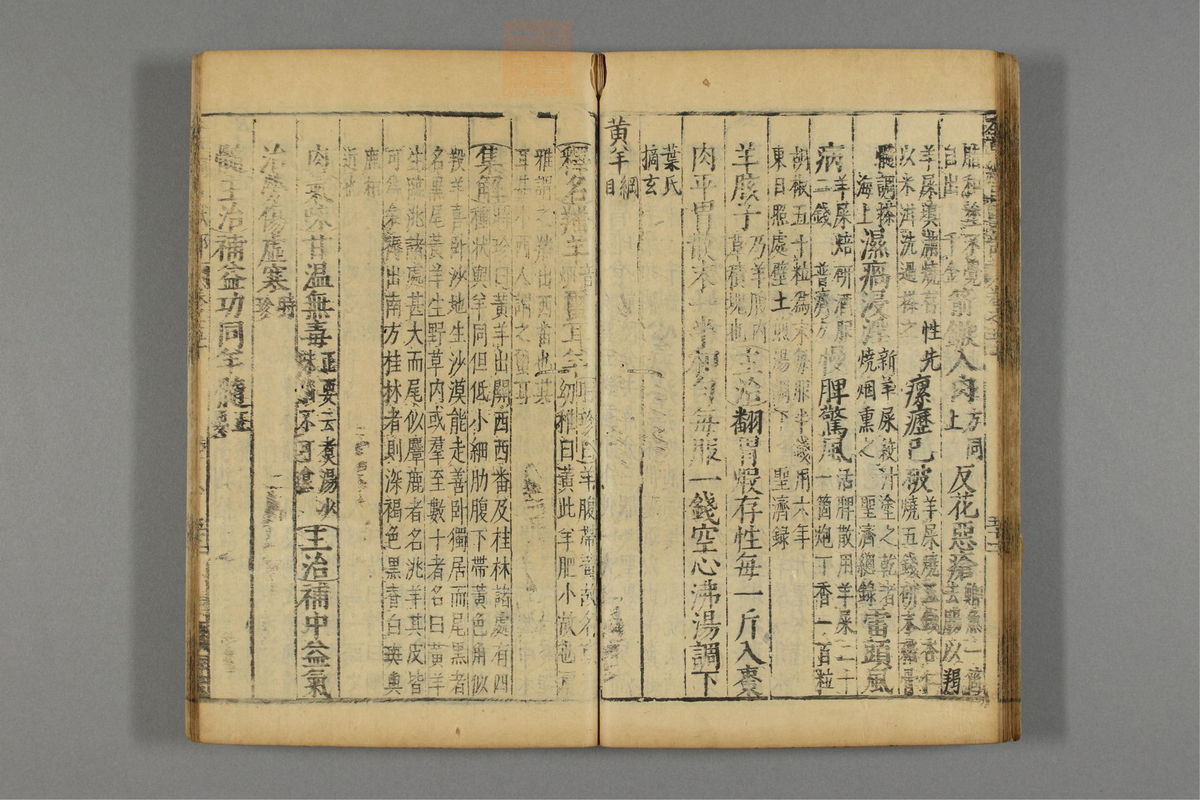 脂和塗不覺
自出 千金
箭鏃入肉
方同
上
反花惡瘡
鯽魚一箇
去腸以羯
羊屎填滿燒存性先
以米泔洗過搽之
瘰癧已破
羊屎燒五錢杏仁
燒五錢研末
髓調搽
海上
濕瘑浸淫
新羊屎絞汁塗之乾者
燒烟熏之 聖濟總錄
雷頭風
病
羊屎焙研酒服
二錢 普濟方
慢脾驚風
活脾散用羊屎二十
一箇炮丁香一百粒
胡椒五十粒為末每服半錢用六年
東日照處壁土煎湯調下 聖濟錄
羊胲子
乃羊腹內
草積塊也
主治翻胃煅存性每一斤入棗
肉平胃散末一半和勻每服一錢空心沸湯調下
葉氏
摘玄
黃羊綱目
釋名羳羊音煩繭耳羊
時珍曰羊腹帶黃故名或
云幼稚曰黃此羊肥小故也爾
雅謂之羳出西番也其
耳甚小西人謂之繭耳
集解
時珍曰黃羊出關西西番及桂林諸處有四
種狀與羊同但低小細肋腹下帶黃色角似
羖羊喜卧沙地生沙漠能走善卧獨居而尾黑者
名黑尾黃羊生野草內或羣至數十者名曰黃羊
生臨洮諸處甚大而尾似麞鹿者名洮羊其皮皆
可為衾褥出南方桂林者則深褐色黑脊白斑與
鹿相
近也
肉氣味甘溫無毒
正要云煮湯少
味腦不可食
主治補中益氣
治勞傷虛寒時珍
髓主治補益功同羊髓正要